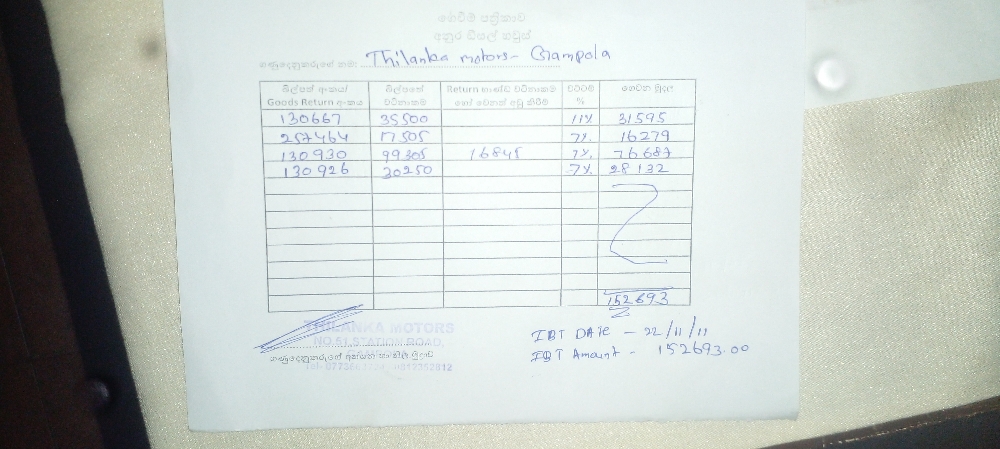 ගෙවීම් පත්‍රිකාව
අනුර ඩීසල් හවුස්
ගණුදෙනුකරුගේ නම: Thilanka motors - Gampola
බිල්පත් අංකය/ Goods Return අංකය බිල්පතේ වටිනාකම Return භාණ්ඩ වටිනාකම හෝ වෙනත් අඩු කිරීම් වට්ටම % ගෙවන මුදල
130667 35500 11% 31595
257464 17505 7% 16279
130930 99305 16845 7% 76687
130926 30250 7% 28132
152693
THILANKA MOTORS
NO.51, STATION ROAD,
IBT DATE - 22/11/11
IBT Amount - 152693.00